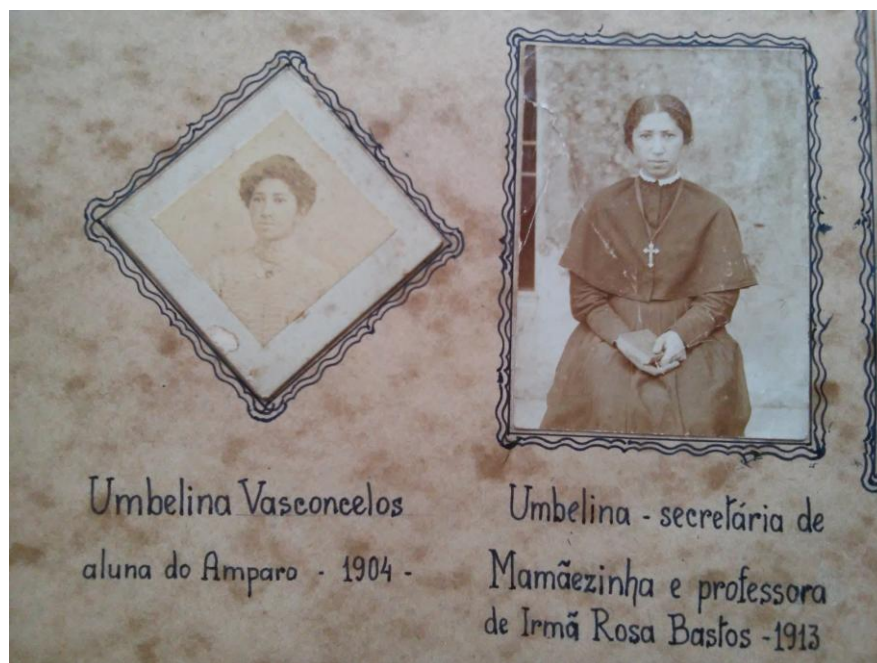 Umbelina Vasconcelos
aluna do Amparo - 1904 -
Umbelina - secretária de
Mamãezinha e professora
de Irmã Rosa Bastos - 1913